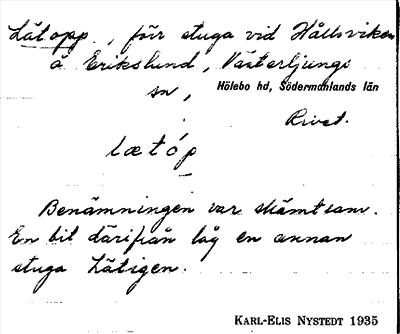 Lätopp, för stuga vid Hållsviken
å Erikslund, Västerljungs
sn, Hölebo hd, Södermanlands län
Rivet.
lætóp
Benämningen var skämtsam.
En bit därifrån låg en annan
stuga Lätigen.
KARL-ELIS NYSTEDT 1935